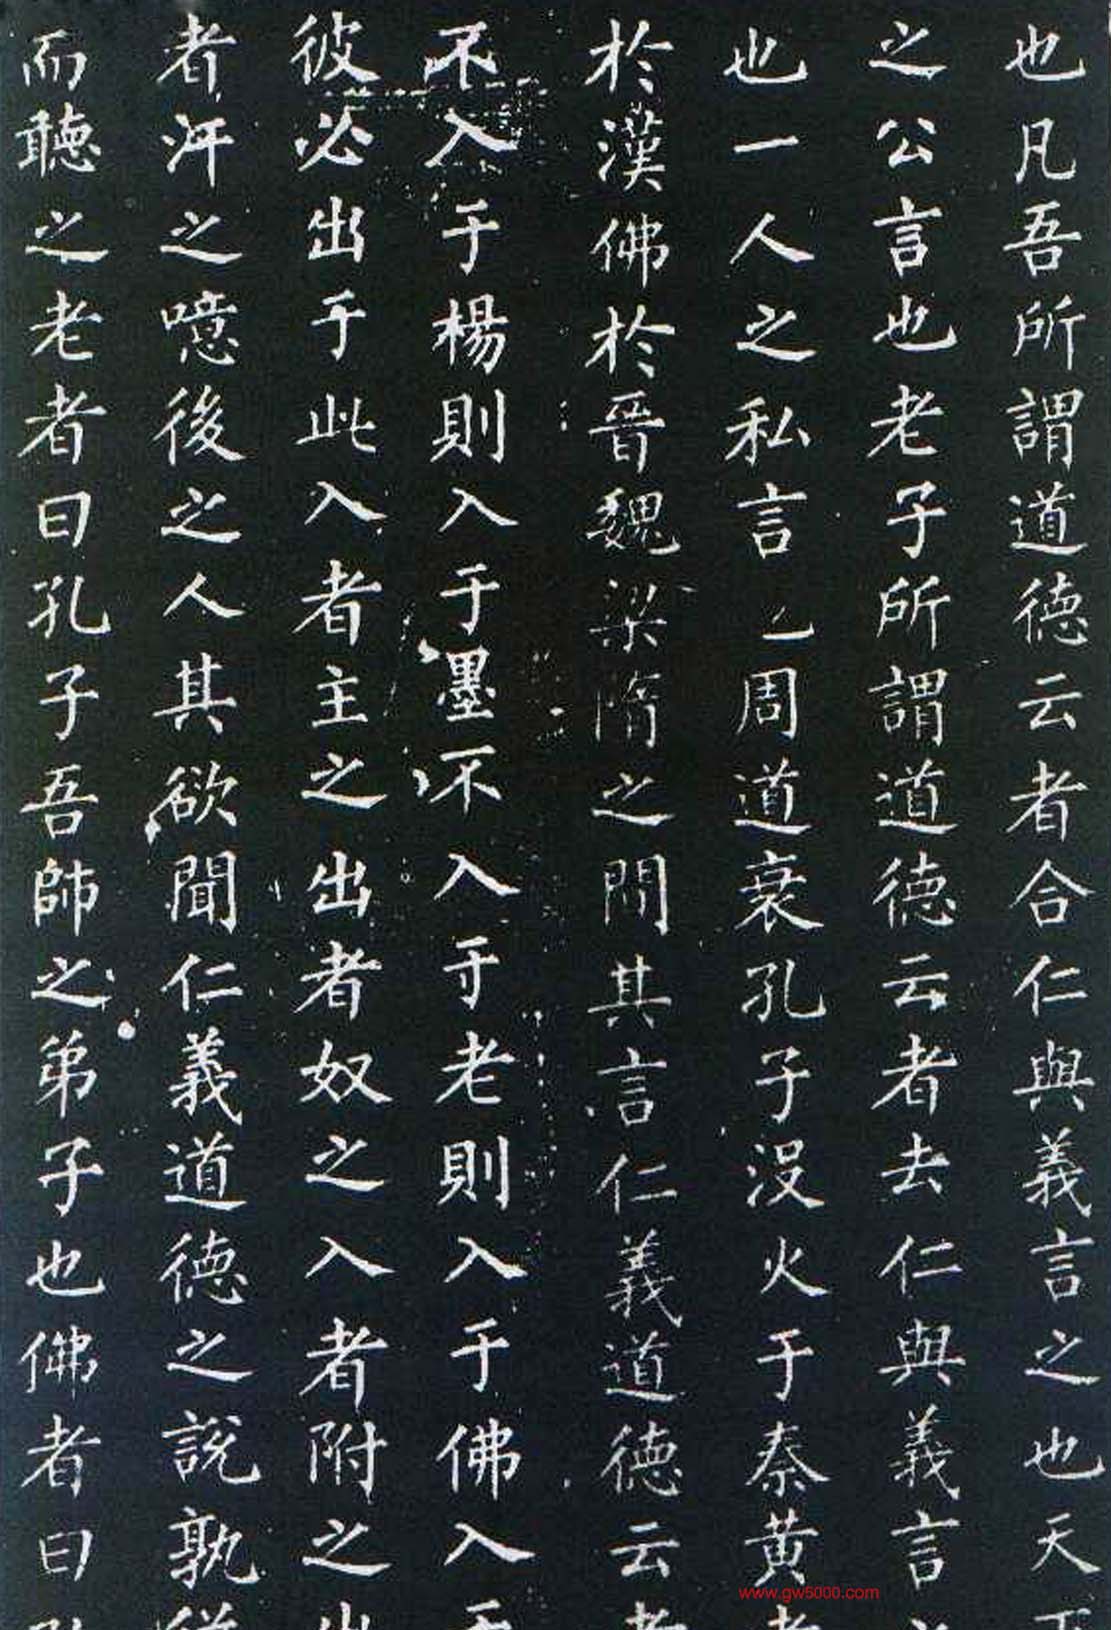 也凡吾所謂道德云者合仁與義言之也天下
之公言也老子所謂道德云者去仁與義言之
也一人之私言也周道衰孔子沒火于秦黄老
於漢佛於晉魏梁隋之間其言仁義道德云者
不入于楊則入于墨不入于老則入于佛入于
彼必出于此入者主之出者奴之入者附之出
者汙之噫後之人其欲聞仁義道德之說孰從
而聽之老者曰孔子吾師之弟子也佛者曰孔
www.gw5000.com